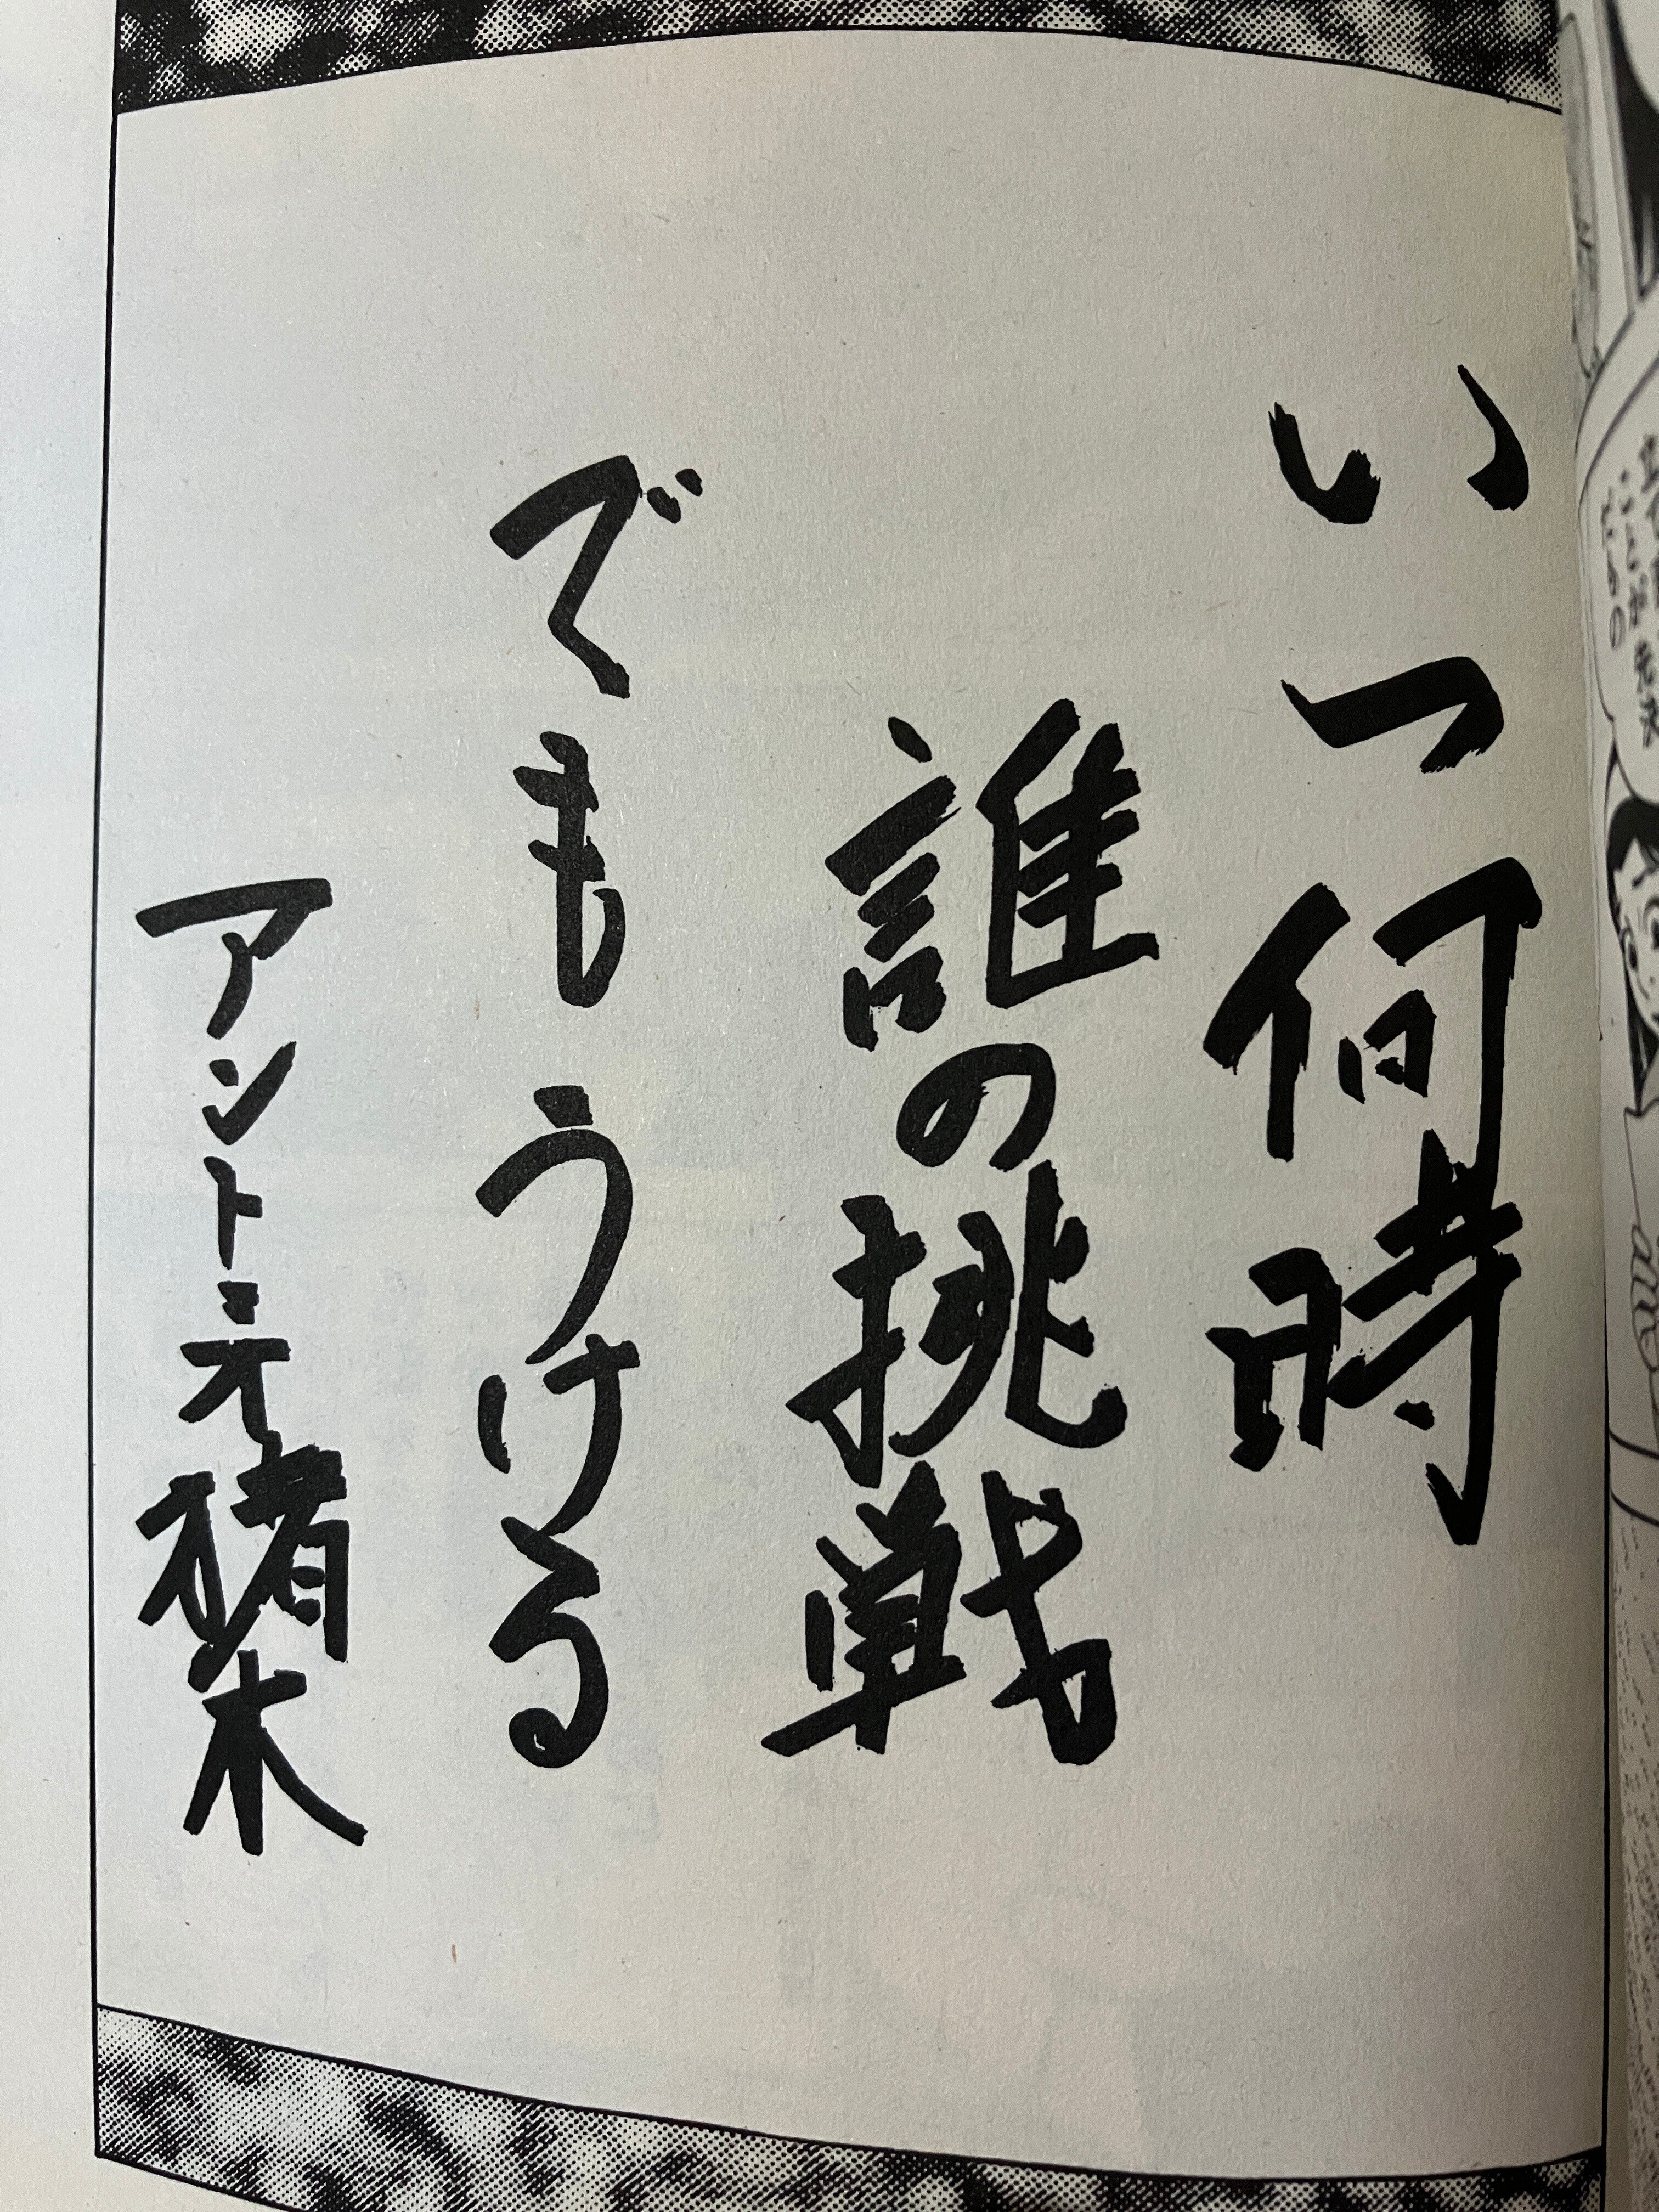 いつ何時
誰の挑戦
でもうける
アントニオ猪木